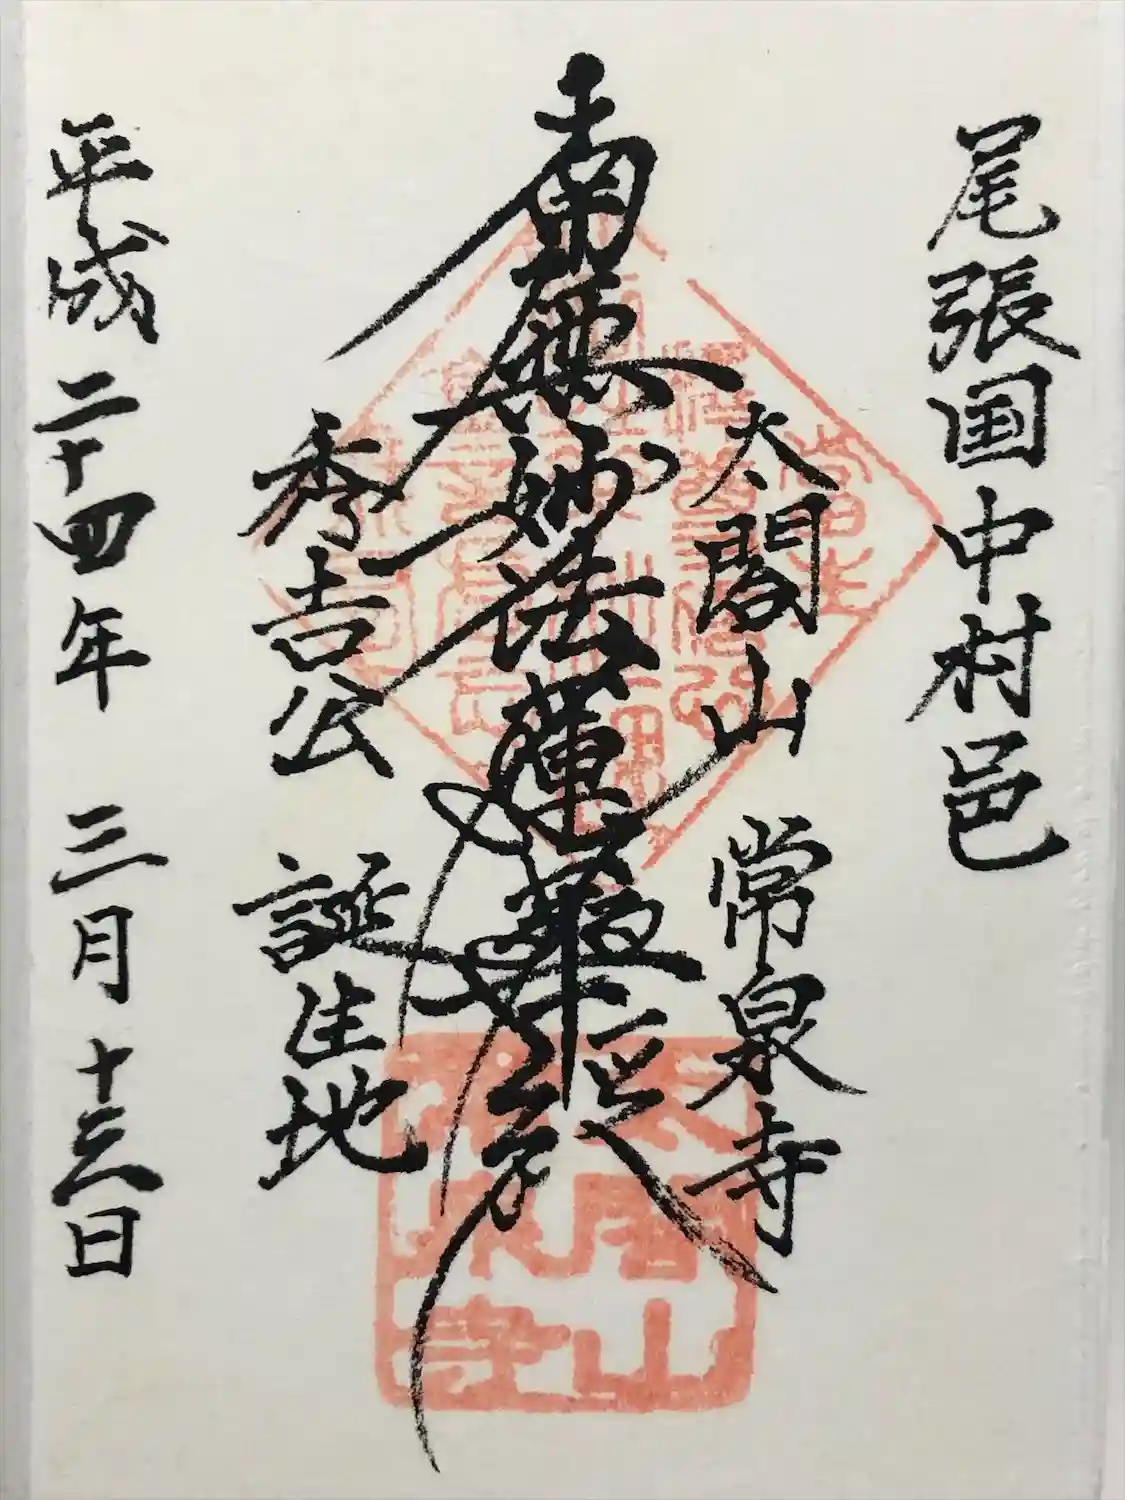 尾張国中村邑
太閤山
常泉寺
南無妙法蓮華経
秀吉公
誕生地
平成二十四年 三月十三日
太閤山
常泉寺